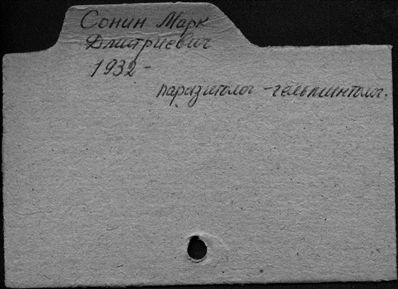 Сонин Марк
Дмитриевич
1932-
паразитолог - гельминтолог.